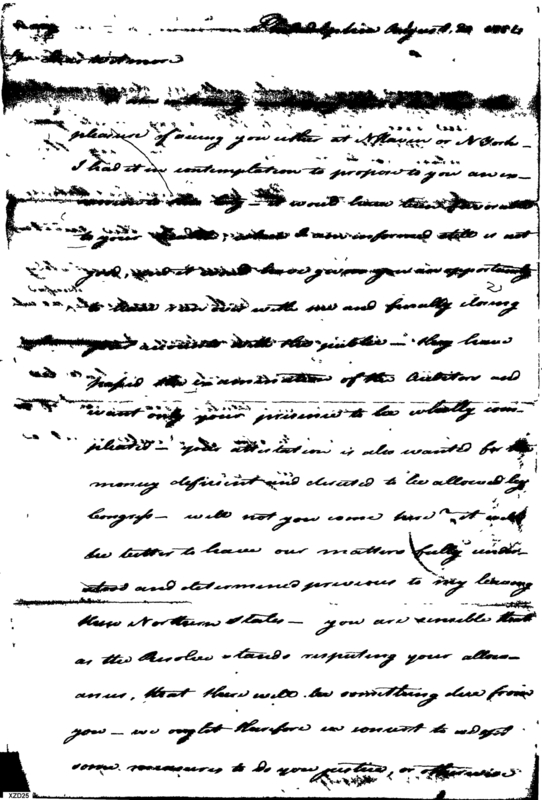 Philadelphia August 20
pleasure of seeing you either at N Haven or N York —
I had it in contemplation to propose to you an ex-
to this City — it would have been favorable
to your health, which I am informed still is not
good, and it would have given you an opportunity
to have run over with me and finally closing
your accounts with the public — they have
passed the examination of the Auditors and
want only your presence to be wholly com-
pleated — your attestation is also wanted for the
money deficient and directed to be allowed by
Congress — will not you come here? it will
be better to have our matters fully under-
stood and determined previous to my leaving
these Northern States — you are sensible that
as the Resolve stands respecting your allow-
ances, that there will be something due from
you — we ought therefore in concert to adopt
some measures to do you justice, or otherwise
XZD25